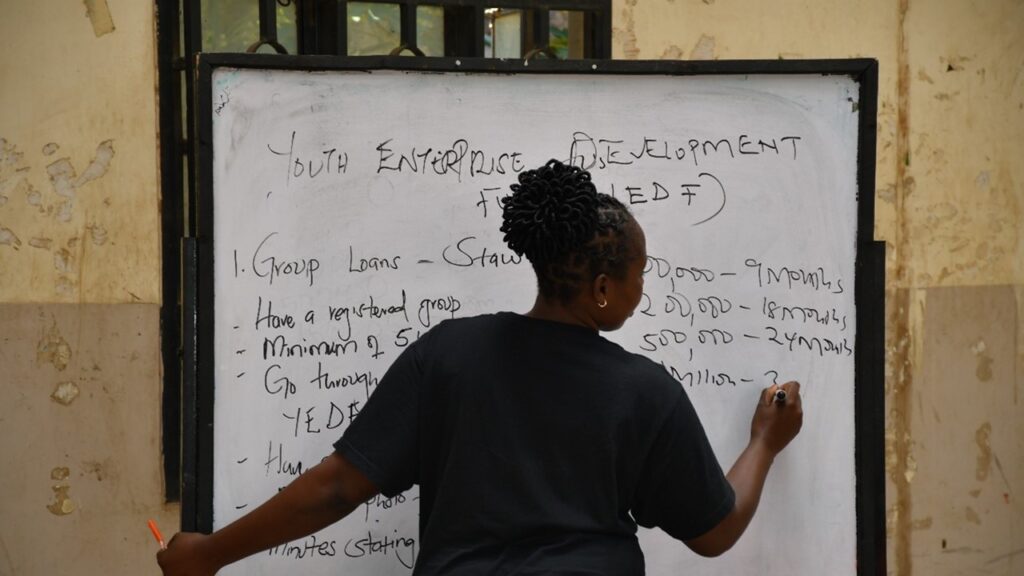 YOUTH ENTERPRISE DEVELOPMENT
YEDF)
1. Group Loans – 00,000 – 9 Months
- Have a registered group 200,000 – 18 months
- Minimum of 5 500,000 – 24 Months
- Go through Million –
YEDF
-
photo –
Minutes (stating